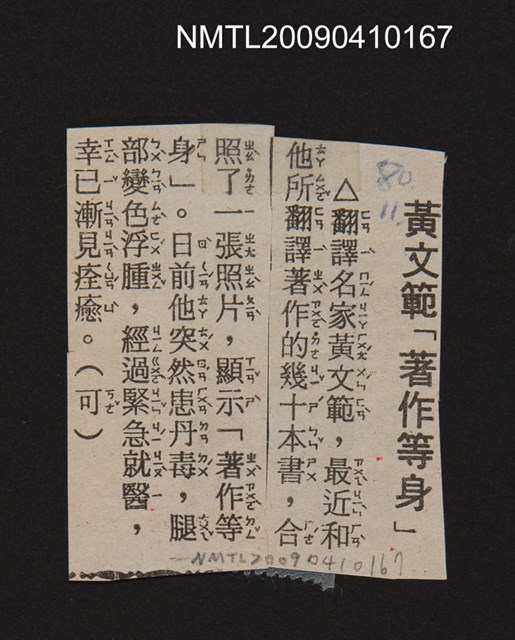 NMTL20090410167
80.
11.
黃文範「著作等身」
△翻譯名家黃文範，最近和
他所翻譯著作的幾十本書，合
照了一張照片，顯示「著作等
身」。日前他突然患丹毒，腿
部變色浮腫，經過緊急就醫，
幸已漸見痊癒。（可）
NMTL20090410167